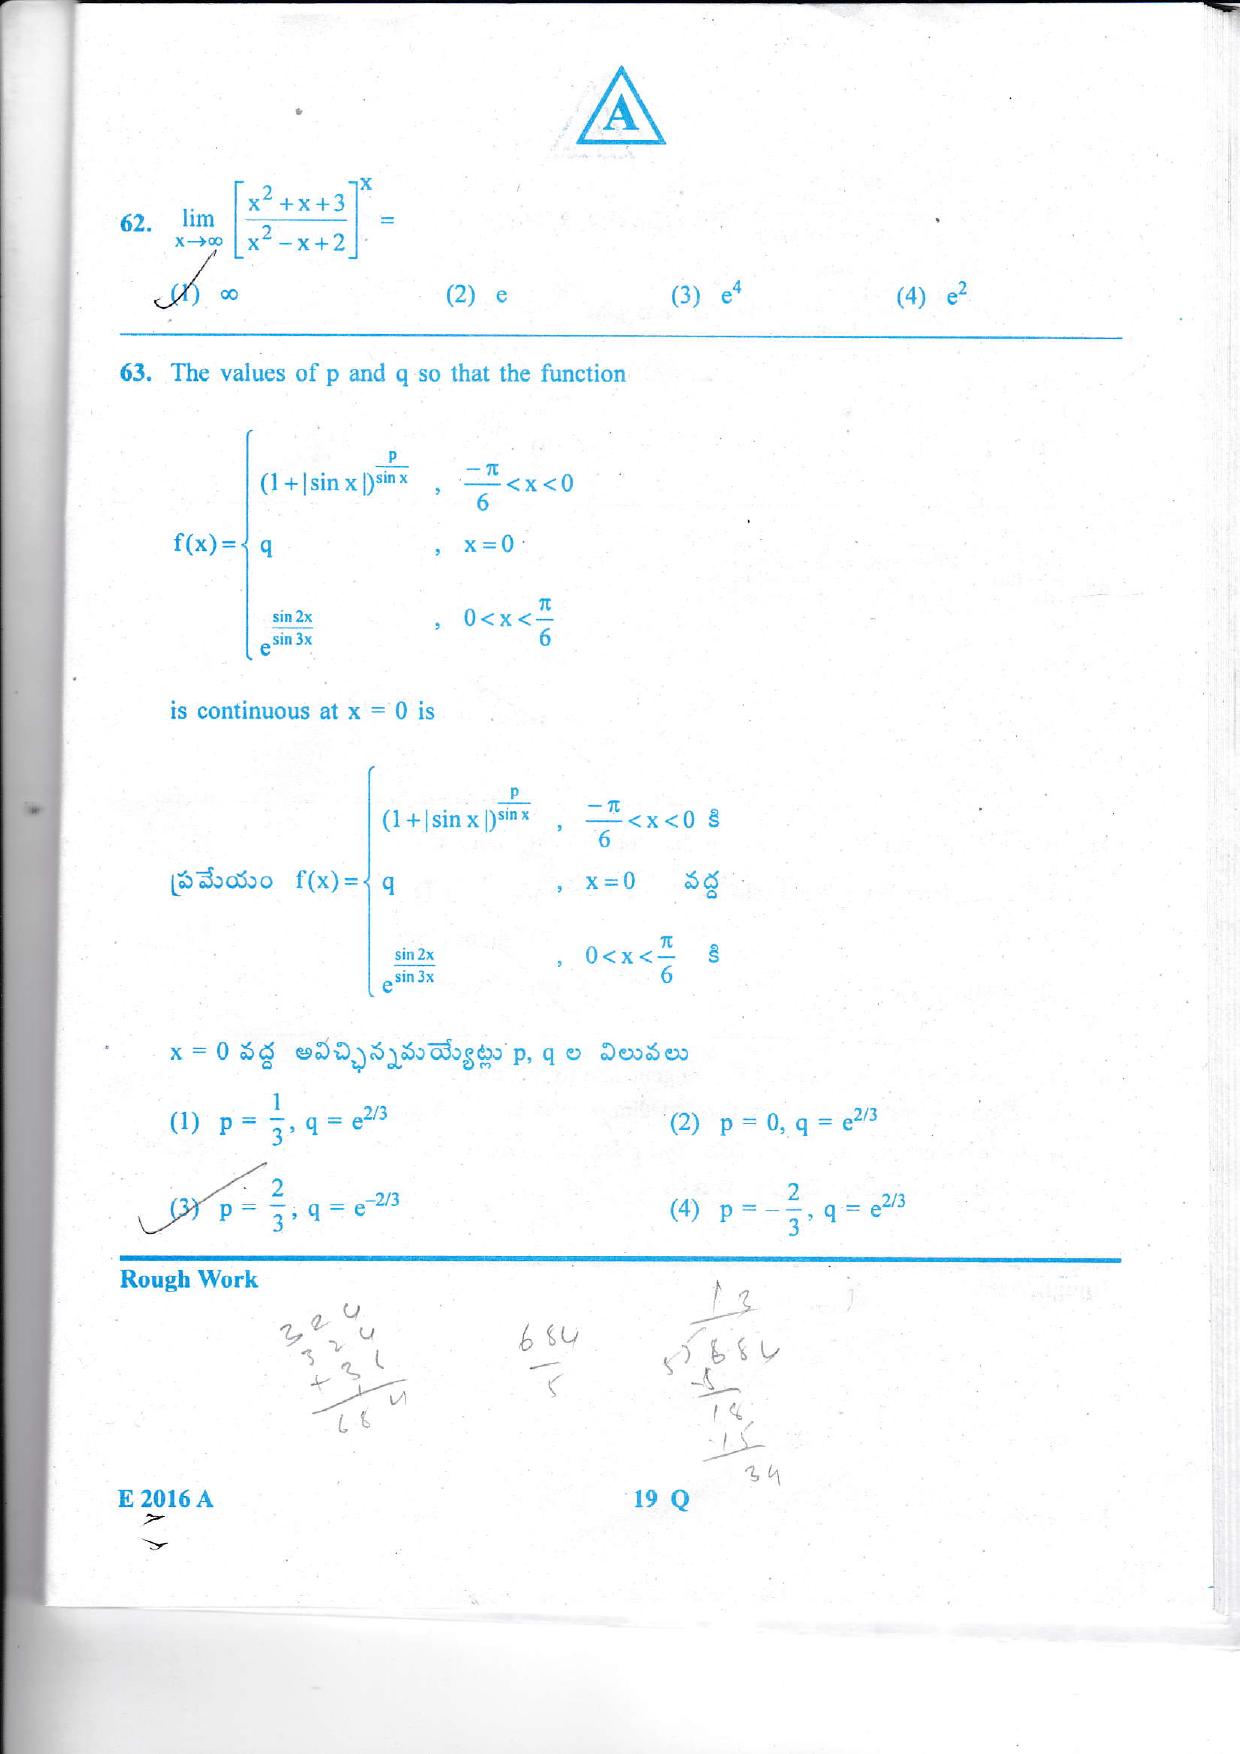 A
62. lim x→∞ [x² + x + 3 / x² − x + 2]^x =
(1) ∞ (2) e (3) e⁴ (4) e²
63. The values of p and q so that the function
f(x) = { (1 + |sin x|)^(p/sin x) , −π/6 < x < 0
q , x = 0
e^(sin 2x/sin 3x) , 0 < x < π/6
is continuous at x = 0 is
ప్రమేయం f(x) = { (1 + |sin x|)^(p/sin x) , −π/6 < x < 0 కి
q , x = 0 వద్ద
e^(sin 2x/sin 3x) , 0 < x < π/6 కి
x = 0 వద్ద అవిచ్ఛిన్నమయ్యేట్లు p, q ల విలువలు
(1) p = 1/3, q = e^2/3 (2) p = 0, q = e^2/3
(3) p = 2/3, q = e^−2/3 (4) p = −2/3, q = e^2/3
Rough Work
324
324
+36
684
684
5
13
5)684
-5
18
-15
34
E 2016 A 19 Q